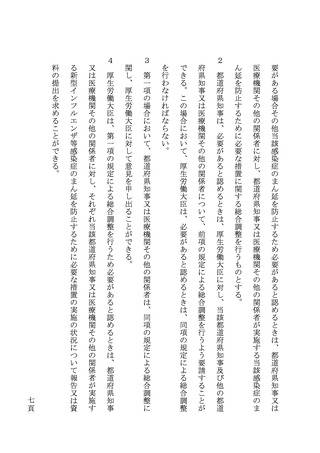 要がある場合その他当該感染症のまん延を防止するため必要があると認めるときは、都道府県知事又は
医療機関その他の関係者に対し、都道府県知事又は医療機関その他の関係者が実施する当該感染症のま
ん延を防止するために必要な措置に関する総合調整を行うものとする。
２　都道府県知事は、必要があると認めるときは、厚生労働大臣に対し、当該都道府県知事及び他の都道
府県知事又は医療機関その他の関係者について、前項の規定による総合調整を行うよう要請することが
できる。この場合において、厚生労働大臣は、必要があると認めるときは、同項の規定による総合調整
を行わなければならない。
３　第一項の場合において、都道府県知事又は医療機関その他の関係者は、同項の規定による総合調整に
関し、厚生労働大臣に対して意見を申し出ることができる。
４　厚生労働大臣は、第一項の規定による総合調整を行うため必要があると認めるときは、都道府県知事
又は医療機関その他の関係者に対し、それぞれ当該都道府県知事又は医療機関その他の関係者が実施す
る新型インフルエンザ等感染症のまん延を防止するために必要な措置の実施の状況について報告又は資
料の提出を求めることができる。
七頁